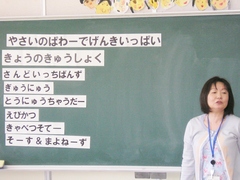 やさいのぱわーでげんきいっぱい
きょうのきゅうしょく
さんどいっちぱんず
ぎゅうにゅう
とうにゅうちゃうだー
えびかつ
きゃべつそてー
そーす&まよねーず